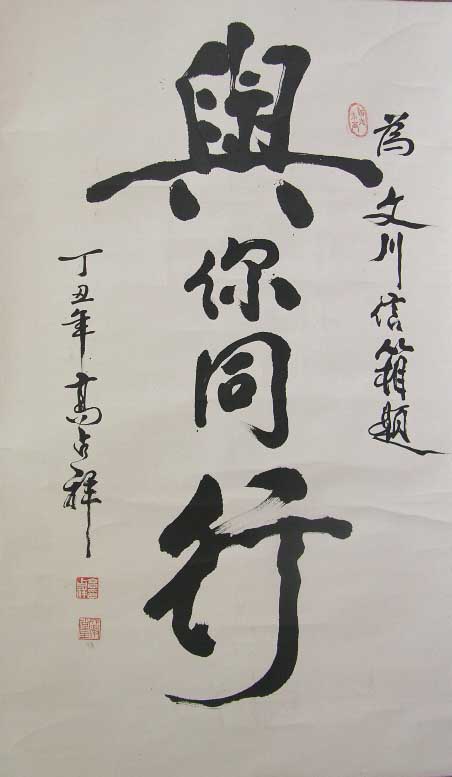 為文川信箱題
與你同行
丁丑年 高占祥